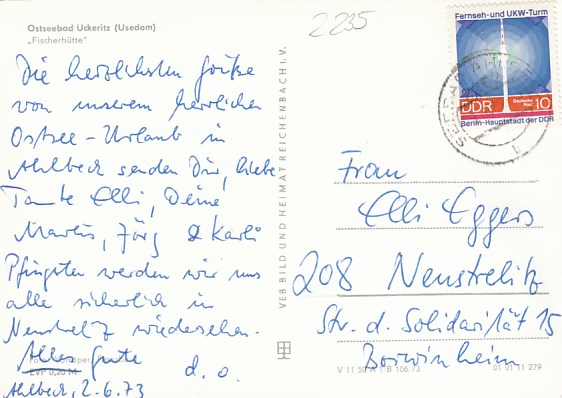 Ostseebad Uckeritz (Usedom)
„Fischerhütte"
2235
Die herzlichsten Grüße
von unserem herrlichen
Ostsee-Urlaub in
Ahlbeck senden Dir, liebe
Tante Elli, Deine
Jörg & Karli
Pfingsten werden wir uns
alle sicherlich in
Neustrelitz wiedersehen.
Alles Gute
d. o.
EVP 0,20 M
Ahlbeck, 2.6.73
VEB BILD UND HEIMAT REICHENBACH i. V.
Fernseh- und UKW-Turm
DDR
Deutsche Post
10
Berlin-Hauptstadt der DDR
Frau
Elli Eggers
208 Neustrelitz
Str. d. Solidarität 15
Borwinheim
V 11 50 A 1 B 106 73
01 01 11 279